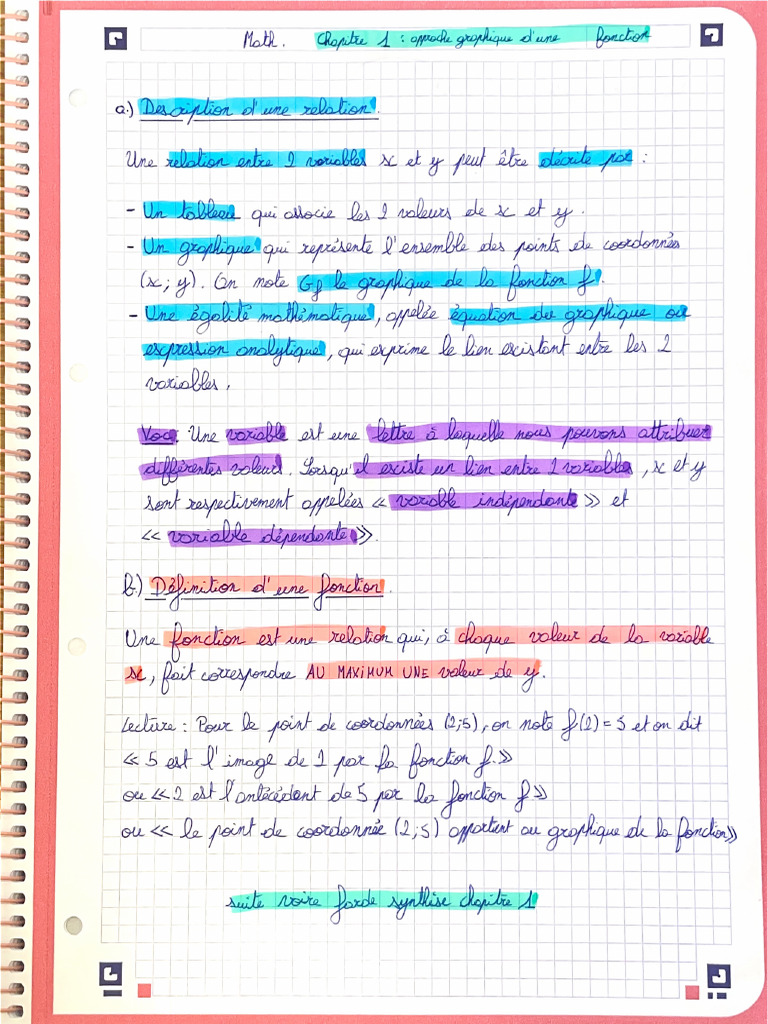 Math. Chapitre 1 : approche graphique d'une fonction
a.) Description d'une relation.
Une relation entre 2 variables x et y peut être décrite par :
- Un tableau qui associe les 2 valeurs de x et y.
- Un graphique qui représente l'ensemble des points de coordonnées
(x ; y). On note Gf le graphique de la fonction f.
- Une égalité mathématique, appelée équation du graphique ou
expression analytique, qui exprime le lien existant entre les 2
variables.
Voc: Une variable est une lettre à laquelle nous pouvons attribuer
différentes valeurs. Lorsqu'il existe un lien entre 2 variables, x et y
sont respectivement appelées « variable indépendante » et
« variable dépendante ».
b.) Définition d'une fonction.
Une fonction est une relation qui, à chaque valeur de la variable
x, fait correspondre AU MAXIMUM UNE valeur de y.
Lecture : Pour le point de coordonnées (2;5), on note f(2) = 5 et on dit
« 5 est l'image de 2 par la fonction f. »
ou « 2 est l'antécédent de 5 par la fonction f »
ou « le point de coordonnée (2;5) appartient au graphique de la fonction »
suite voire farde synthèse chapitre 1